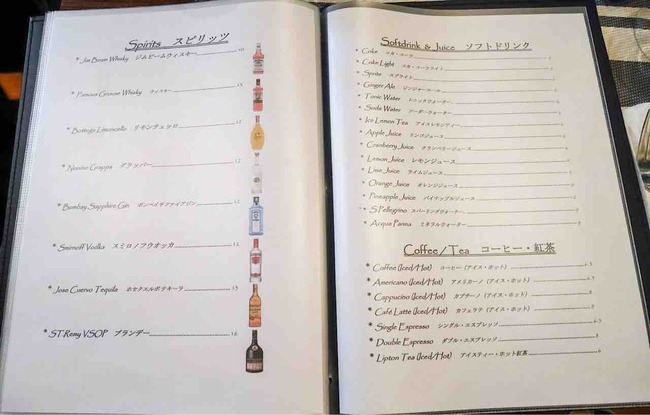 Spirits スピリッツ
* Jim Beam Whisky ジムビームウィスキー 10
* Famous Grouse Whisky ウィスキー
* Bottega Limoncello リモンチェッロ 12
* Nonino Grappa グラッパー 12
* Bombay Sapphire Gin ボンベイサファイアジン 12
* Smirnoff Vodka スミロノフウオッカ
* Jose Cuervo Tequila ホセクエルボテキーラ 13
* ST-Remy VSOP ブランデー 16
Softdrink & Juice ソフトドリンク
* Coke コカ・コーラ
* Coke Light コカ・コーラライト
* Sprite スプライト
* Ginger Ale ジンジャーエール
* Tonic Water トニックウォーター
* Soda Water ソーダーウォーター
* Ice Lemon Tea アイスレモンティー
* Apple Juice リンゴジュース
* Cranberry Juice クランベリージュース
* Lemon Juice レモンジュース
* Lime Juice ライムジュース
* Orange Juice オレンジジュース
* Pineapple Juice パイナップルジュース
* S.Pellegrino スパーリングウォーター
* Acqua Panna ミネラルウォーター
Coffee/Tea コーヒー・紅茶
* Coffee (Iced/Hot) コーヒー (アイス・ホット)
* Americano (Iced/Hot) アメリカーノ (アイス・ホット)
* Cappucino (Iced/Hot) カプチーノ (アイス・ホット)
* Café Latte (Iced/Hot) カフェラテ (アイス・ホット)
* Single Espresso シングル・エスプレッソ
* Double Espresso ダブル・エスプレッソ
* Lipton Tea (Iced/Hot) アイスティー・ホット紅茶